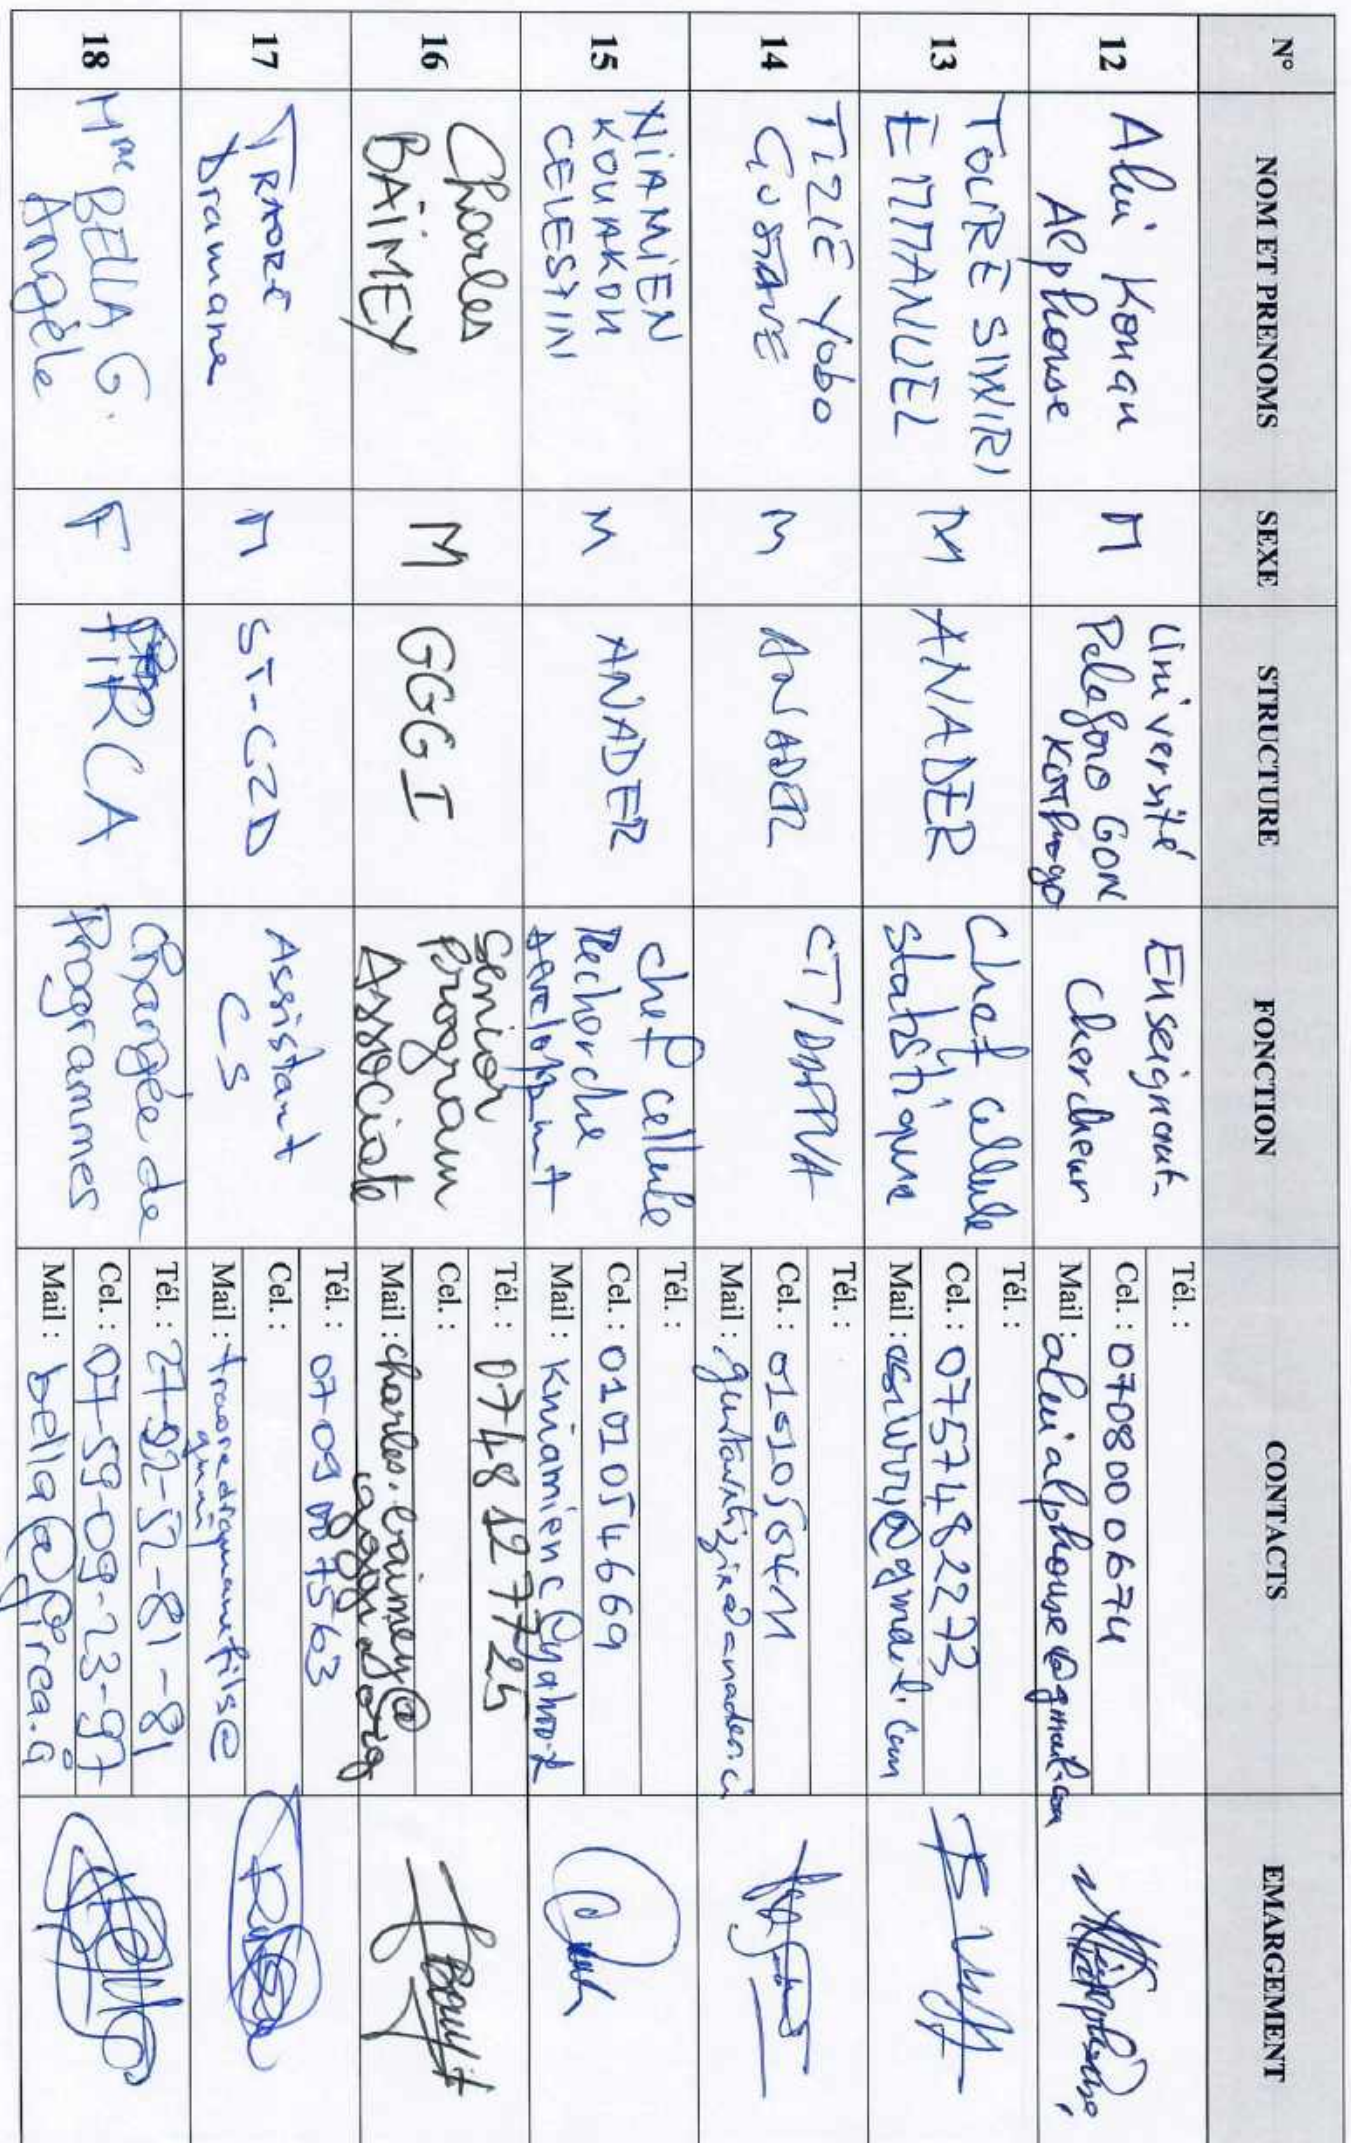 N° NOM ET PRENOMS SEXE STRUCTURE FONCTION CONTACTS EMARGEMENT
12
Alui Konan
Alphonse
M
Université
Peleforo GON
Korhogo
Enseignant-
Chercheur
Tél. :
Cel. : 0708000674
Mail : aluialphouse@gmail.com
13
TOURÉ SIWIRI
EMMANUEL
M
ANADER
Chef cellule
statistique
Tél. :
Cel. : 0757482273
Mail : @gmail.com
14
TIZIE Yobo
GUSTAVE
M
ANADER
Tél. :
Cel. :
Mail :
15
NIAMIEN
KOUAKOU
CELESTIN
M
ANADER
chef cellule
Recherche
developpmt
Tél. :
Cel. : 0101054669
Mail : kniamienc@yahoo.f
16
Charles
BAÏMEY
M
GGGI
Senior
Program
Associate
Tél. : 0748127725
Cel. :
Mail : charles.baimey@
gggi.org
17
TRAORE
Dramane
M
ST-C2D
Assistant
CS
Tél. : 0709007563
Cel. :
Mail : traoredramanefils@
gmail
18
Mme BELLA G.
Angèle
F
FIRCA
Chargée de
Programmes
Tél. : 27-22-52-81-81
Cel. : 07-59-09-23-97
Mail : bella@firca.ci